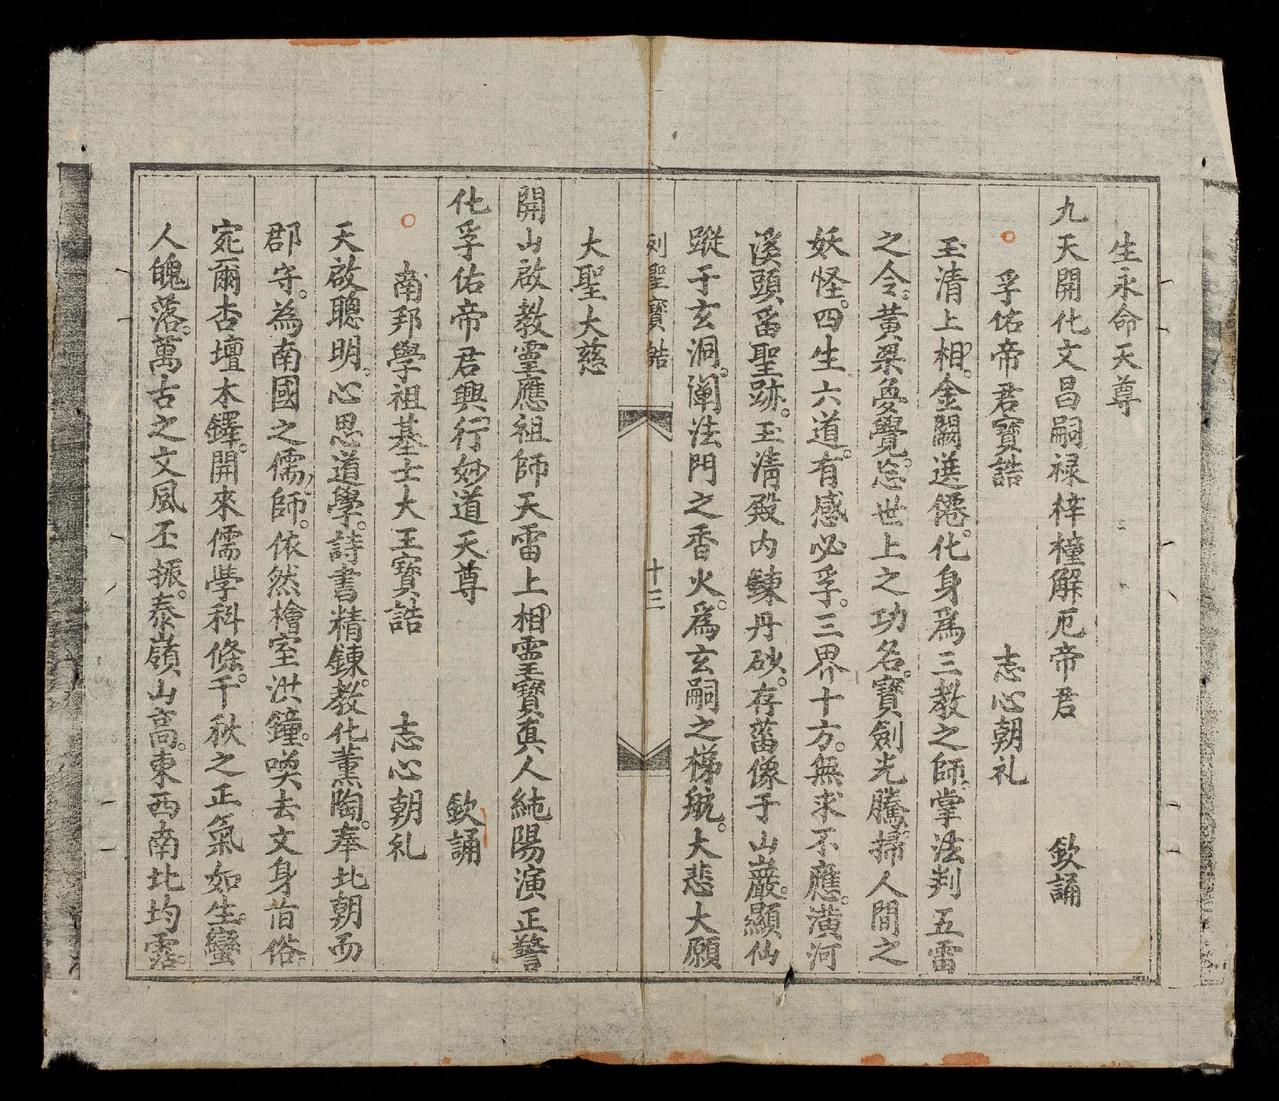 生永命天尊
九天開化文昌嗣禄梓橦解厄帝君　欽誦
○　孚佑帝君寶誥　志心朝礼
玉清上相。金闕選僊。化身爲三教之師。掌法判五雷
之令。黄粱夢覺。忘世上之功名。寶劍光騰。掃人間之
妖怪。四生六道。有感必孚。三界十方。無求不應。潢河
溪頭畱聖跡。玉清殿内鍊丹砂。存舊像于山巖。顯仙
蹤于玄洞。闡法門之香火。爲玄嗣之梯航。大悲大願
列聖寶誥　十三
大聖大慈
開山啟教靈應祖師天雷上相靈寶真人純陽演正警
化孚佑帝君興行妙道天尊　欽誦
○　南邦學祖基士大王寶誥　志心朝礼
天啟聰明。心思道學。詩書精鍊。教化薰陶。奉北朝而
郡守。為南國之儒師。依然檜室洪鐘。喚去文身旧俗。
宛爾杏壇木鐸。開來儒學科條。千秋之正氣如生。蠻
人魄落。萬古之文風丕振。泰嶺山高。東西南北均霑。